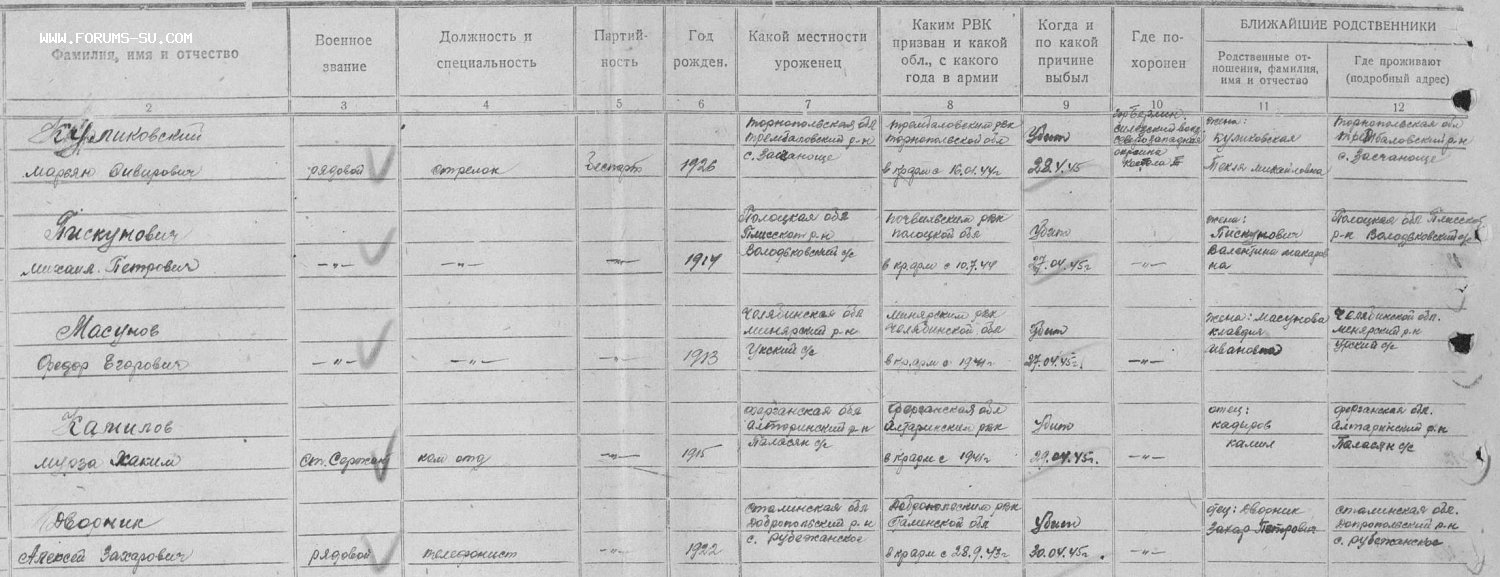 WWW.FORUMS-SU.COM
Фамилия, имя и отчество
Военное
звание
Должность и
специальность
Партий-
ность
Год
рожден.
Какой местности
уроженец
Каким РВК
призван и какой
обл., с какого
года в армии
Когда и
по какой
причине
выбыл
Где по-
хоронен
БЛИЖАЙШИЕ РОДСТВЕННИКИ
Родственные от-
ношения, фамилия,
имя и отчество
Где проживают
(подробный адрес)
2
3
4
5
6
7
8
9
10
11
12
Куликовский
Марьян
рядовой
стрелок
1926
Торнопольская обл
Трембаловский р-н
с. Засчаноще
Трембаловский рвк
Торнопольской обл
в кр арм с 16.01.44г
Убит
28.4.45
северозападная
окраина
жена:
Куликовская
Текля Михайловна
Торнопольская обл
Трембаловский р-н
с. Засчаноще
Пискунович
Михаил Петрович
—„—
—„—
—„—
1914
Полоцкая обл
Плисский р-н
Володьковский с/с
полоцкой обл
в кр арм с 10.7.44
Убит
27.04.45г
—„—
жена:
Пискунович
Валентина Макаров
на
Полоцкая обл Плисской
р-н Володьковский с/с
Масунов
Федор Егорович
—„—
—„—
—„—
1913
Челябинская обл
Минярский р-н
Укский с/с
Минярский рвк
Челябинской обл
в кр арм с 1941г
Убит
27.04.45г.
—„—
жена: Масунова
Клавдия
Ивановна
Челябинской обл.
Менярский р-н
Укский с/с
Камилов
Мурза Хаким
ст. Сержан
ком отд
—„—
1915
Ферганская обл
Алтаринский р-н
Паласян с/с
Ферганская обл
Алтаринский рвк
в кр арм с 1941г
Убит
29.04.45г.
—„—
отец:
Кадиров
Камил
Ферганская обл.
Алтаринский р-н
Паласян с/с
Дворник
Алексей Захарович
рядовой
телефонист
—„—
1922
Сталинская обл
Добропольский р-н
с. Рубежанское
Добропольским рвк
Сталинской обл
в кр арм с 28.9.43г
Убит
30.04.45г
—„—
отец: Дворник
Захар Петрович
Сталинская обл.
Допропольский р-н
с. Рубежанское